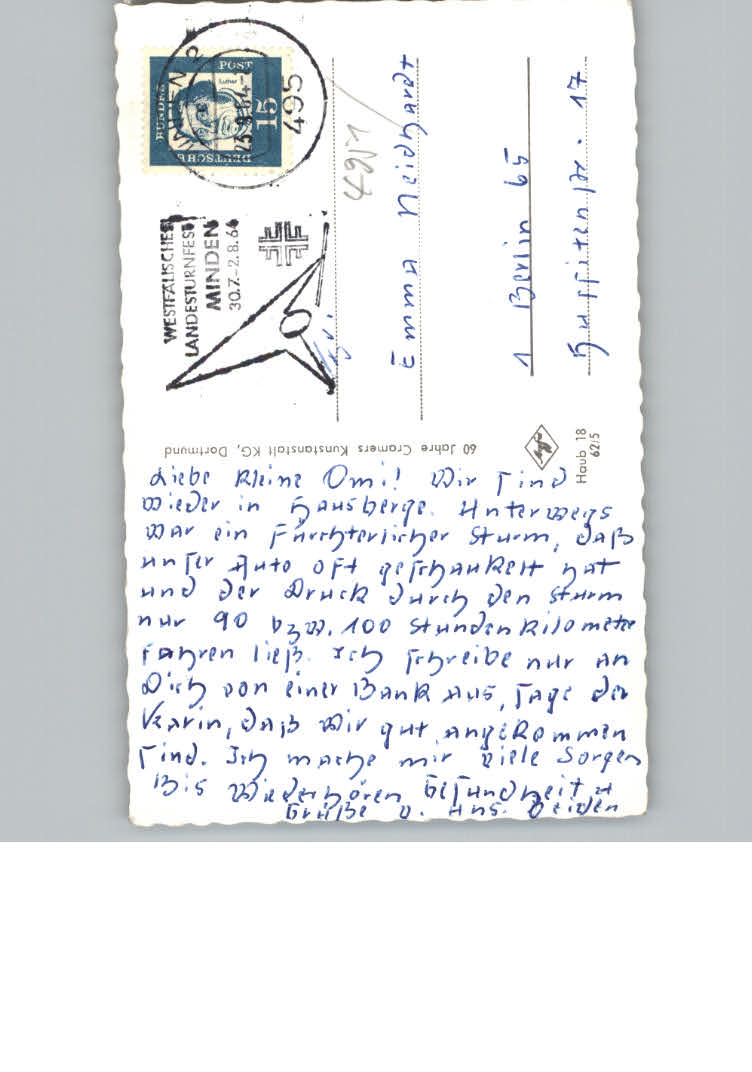 Liebe kleine Omi! Wir sind
wieder in Hausberge. Unterwegs
war ein fürchterlicher Sturm, daß
unser Auto oft geschaukelt hat
und der Druck durch den Sturm
nur 90 bzw. 100 Stundenkilometer
fahren ließ. Ich schreibe nur an
Dich von einer Bank aus, sage der
Karin, daß wir gut angekommen
sind. Ich mache mir viele Sorgen
Bis Wiederhören Gesundheit u
Grüße v. uns. beiden
Emma Neidhardt
1 Berlin 65
Hussitenstr. 17
60 Jahre Cramers Kunstanstalt KG, Dortmund
Haub 18
62/5
WESTFÄLISCHES
LANDESTURNFEST
MINDEN
30.7.-2.8.64
495
DEUTSCHE
BUNDES
POST
Luther
15